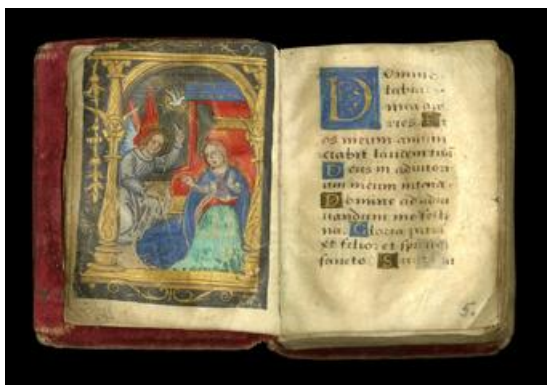 Domine
labia
mea ape
ries Et
os meum annun
ciabit laudem tuā
Deus in adiutori
um meum
Domine ad adiu
uandum me festi
na. Gloria patri
et filio et
sancto.
5.